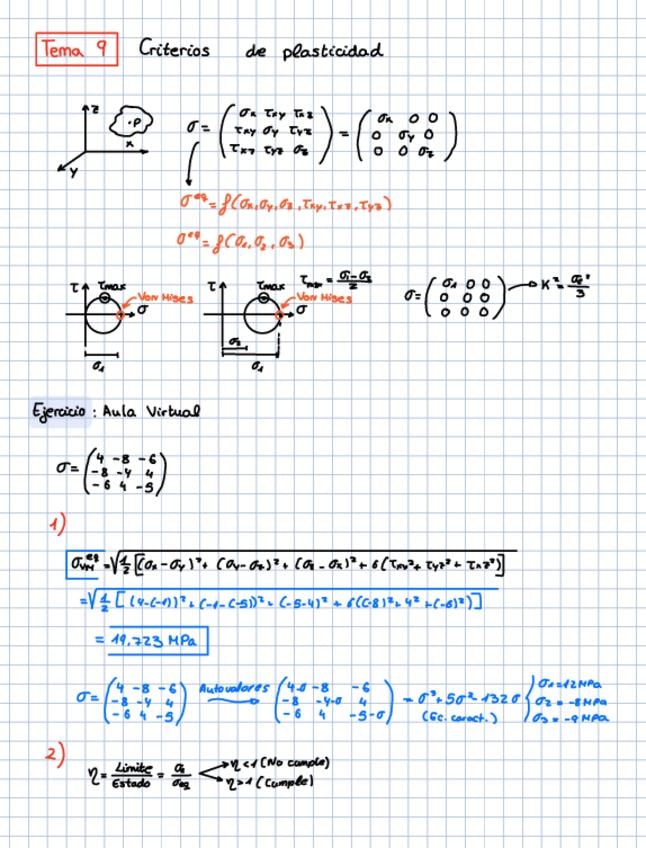 Tema 9 Criterios de plasticidad
z
.P
x
y
σ = (σx τxy τxz
τxy σy τyz
τxz τyz σz) = (σx 0 0
0 σy 0
0 0 σz)
σ^eq = f(σx, σy, σz, τxy, τxz, τyz)
σ^eq = f(σ1, σ2, σ3)
τ τmax Von Mises σ
σ1
τ τmax τmax = σ1-σ3/2
Von Mises σ
σ3
σ1
σ = (σ1 0 0
0 0 0
0 0 0) → K² = σe²/3
Ejercicio : Aula Virtual
σ = (4 -8 -6
-8 -4 4
-6 4 -5)
1)
σVM^eq = √1/2 [(σx - σy)² + (σy - σz)² + (σz - σx)² + 6(τxy² + τyz² + τxz²)]
= √1/2 [(4-(-4))² + (-4-(-5))² + (-5-4)² + 6((-8)² + 4² + (-6)²)]
= 19.723 MPa
σ = (4 -8 -6
-8 -4 4
-6 4 -5) Autovalores → (4-σ -8 -6
-8 -4-σ 4
-6 4 -5-σ) = σ³ + 5σ² - 132σ
(Ec. caract.)
σ1 = 12 MPa
σ2 = -8 MPa
σ3 = -9 MPa
2)
η = Limite/Estado = σe/σeq
η < 1 (No cumple)
η > 1 (Cumple)